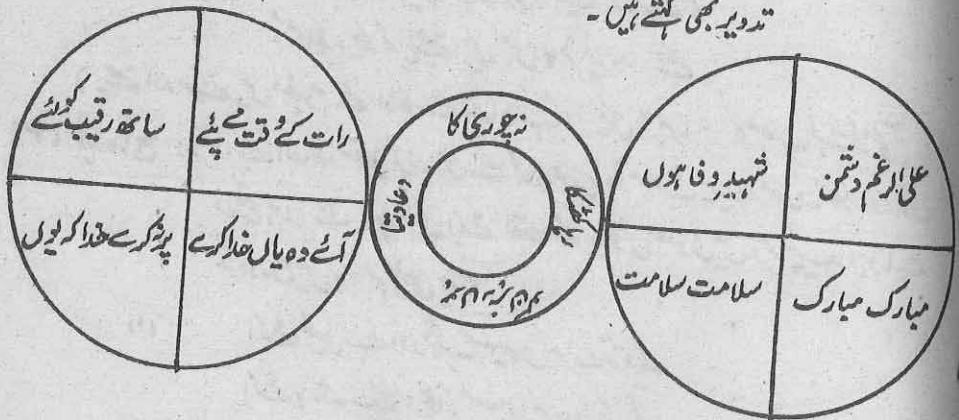 تدویر بھی کہتے ہیں۔
علی الرغم دشمن
شہیدِ وفا ہوں
مبارک مبارک
سلامت سلامت
نہ چوری کا
رات کے وقت مے پئے
ساتھ رقیب کو لئے
آئے وہ یاں خدا کرے
پر نہ کرے خدا کہ یوں